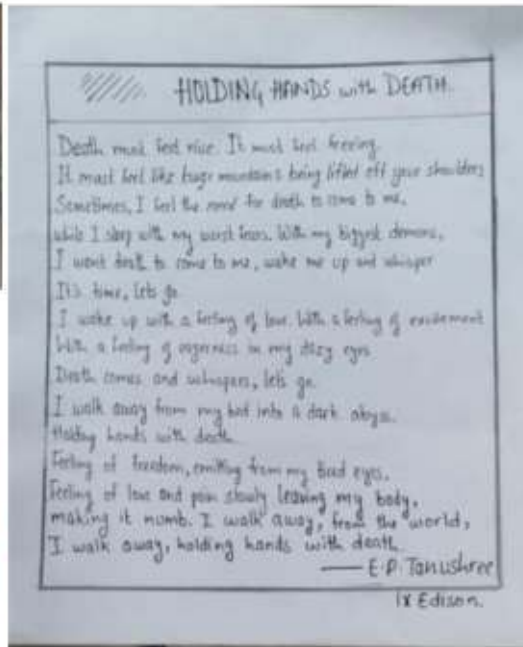 HOLDING HANDS with DEATH.
Death must feel nice. It must feel freeing.
It must feel like huge mountains being lifted off your shoulders
Sometimes, I feel the need for death to come to me,
while I sleep with my worst fears. With my biggest demons,
I want death to come to me, wake me up and whisper
It's time, lets go
I wake up with a feeling of love. With a feeling of excitement
With a feeling of eagerness in my eyes
Death comes and whispers, lets go.
I walk away from my bed into a dark abyss.
Holding hands with death.
Feeling of freedom, emitting from my eyes.
Feeling of love and pain slowly leaving my body,
making it numb. I walk away, from the world,
I walk away, holding hands with death.
—— E.P. Tanushree
IX Edison.